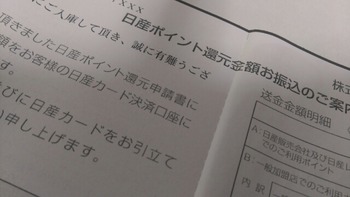 XXXX
株式
日産ポイント還元金額お振込のご案内
にご入庫して頂き、誠に有難うござ
頂きました日産ポイント還元申請書に
額をお客様の日産カード決済口座に
す。
びに日産カードをお引立て
申し上げます。
送金金額明細
A:日産販売会社及び日産レ
でのご利用ポイント
B:一般加盟店でのご利用
内 訳